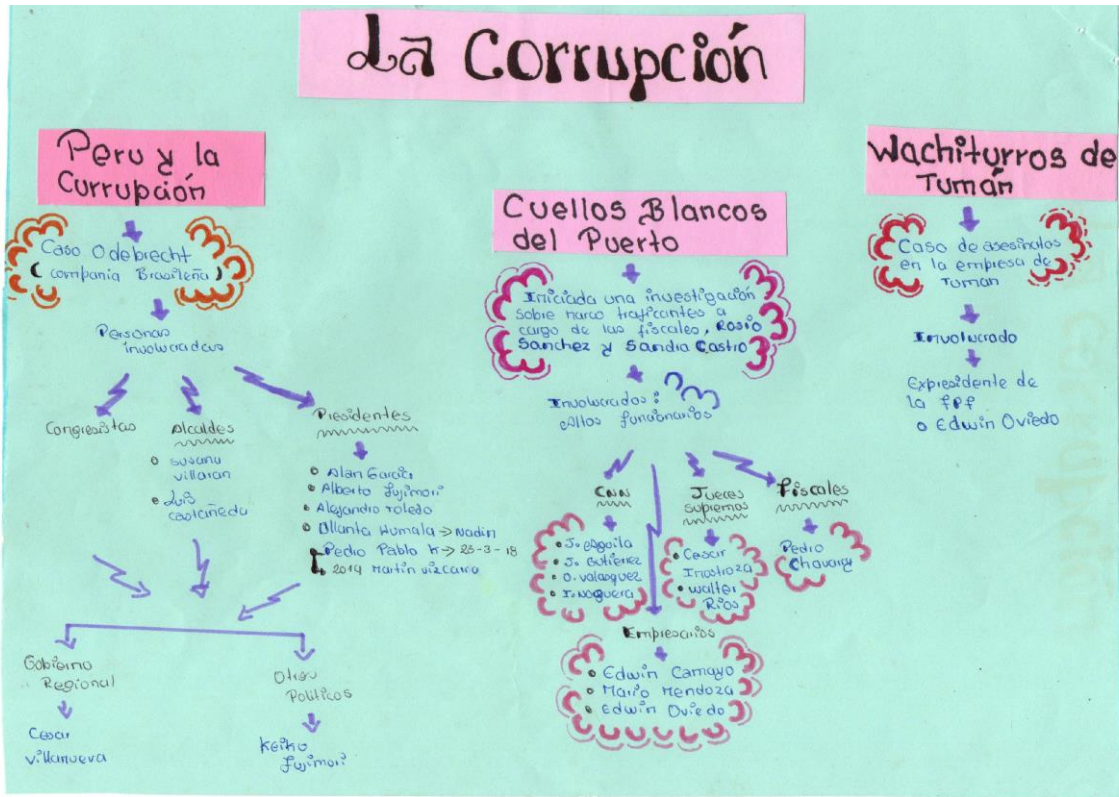 La Corrupción
Peru y la
Currupción
Caso Odebrecht
( compania Brasileña )
Personas
involucradas
Congresistas
Alcaldes
Susana
villaran
Luis
castañeda
Presidentes
Alan Garcia
Alberto fujimori
Alejandro toledo
Ollanta Humala → Nadin
Pedro Pablo K → 23-3-18
2014 Martin vizcarra
Gobierno
Regional
Cesar
villanueva
Otros
Politicos
Keiko
fujimori
Cuellos Blancos
del Puerto
Iniciada una investigación
sobre narco traficantes a
cargo de las fiscales, Rosio
Sanchez y Sandra Castro
Involucrados :
altos funcionarios
CNN
J. Aguila
J. Gutierrez
O. Valasquez
I. Noguera
Jueces
supremos
Cesar
Inostroza
walter
Rios
Fiscales
Pedro
Chavarry
Empresarios
Edwin Camayo
Mario Mendoza
Edwin Oviedo
Wachiturros de
Tumán
Caso de asesinatos
en la empresa de
Tuman
Involucrado
Expresidente de
la fpf
o Edwin Oviedo